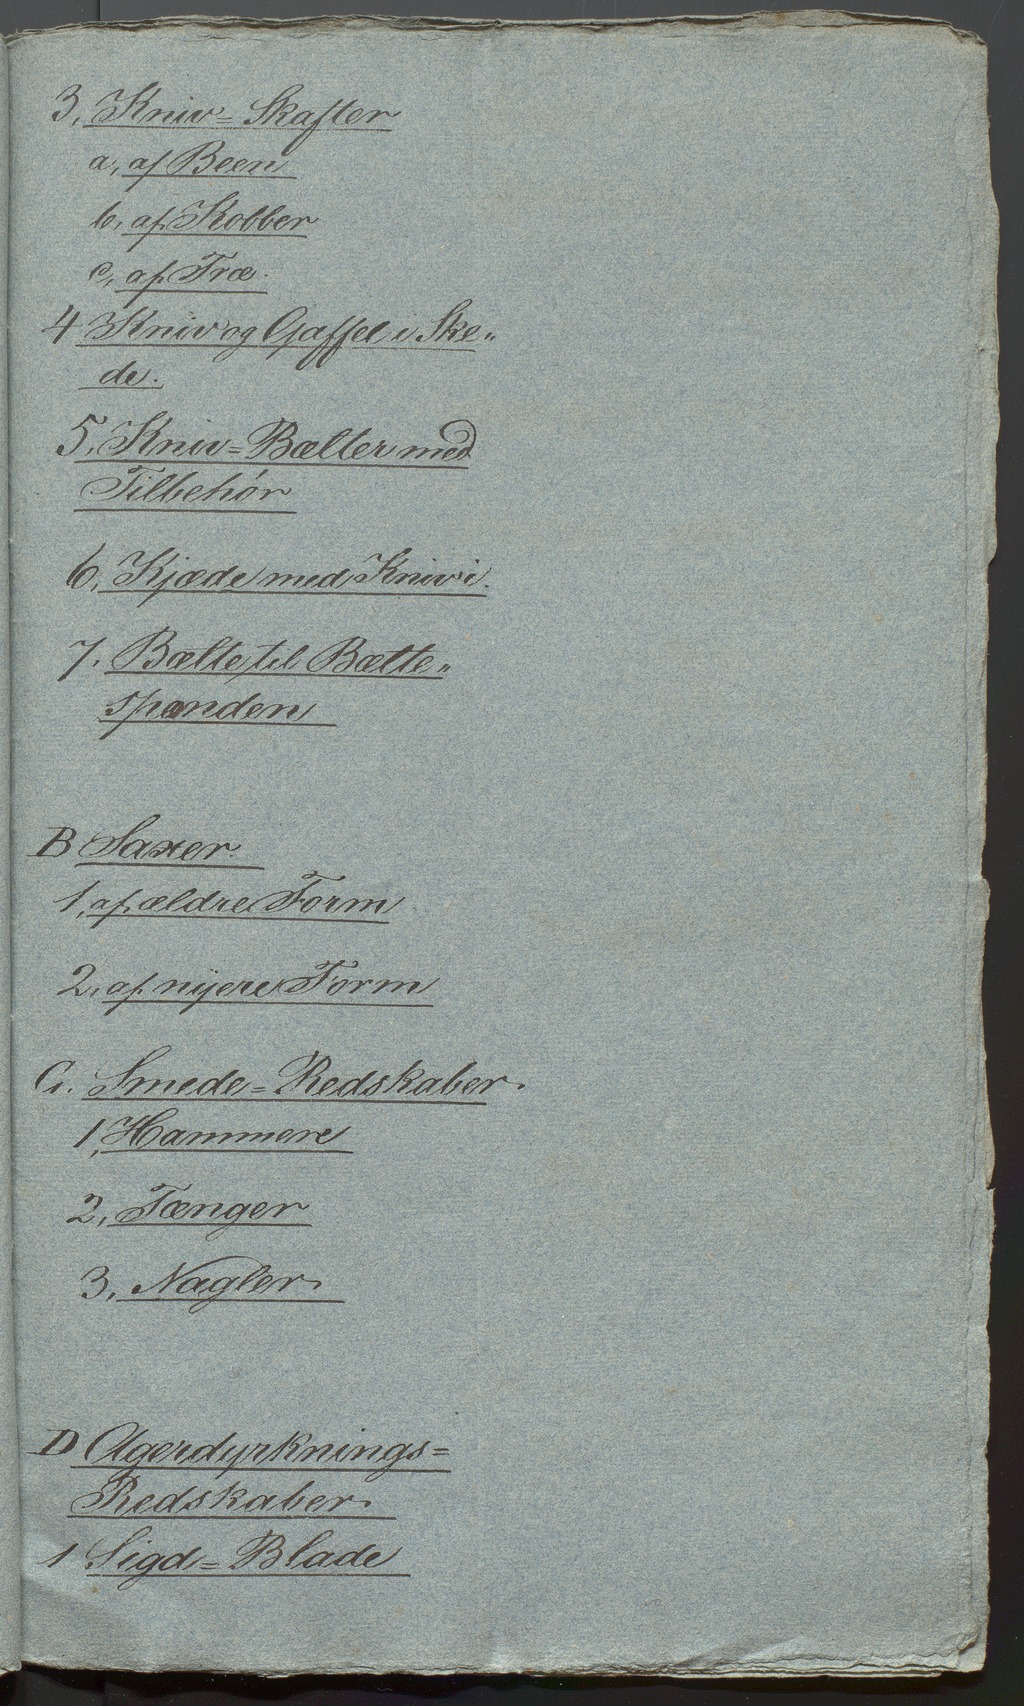 3, Kniv=Skafter
a, af Been
b, af Kobber
c, af Træ.
4 Kniv og Gaffel i Ske„
de.
5, Kniv=Bælter med
Tilbehör
6, Kjæde med Kniv i.
7. Bælte til Bælte„
spænden
B Saxer.
1, af ældre Form
2, af nyere Form
C. Smede=Redskaber.
1, Hammere
2, Tænger
3, Nagler.
D Agerdyrknings=
Redskaber.
1 Sigd=Blade